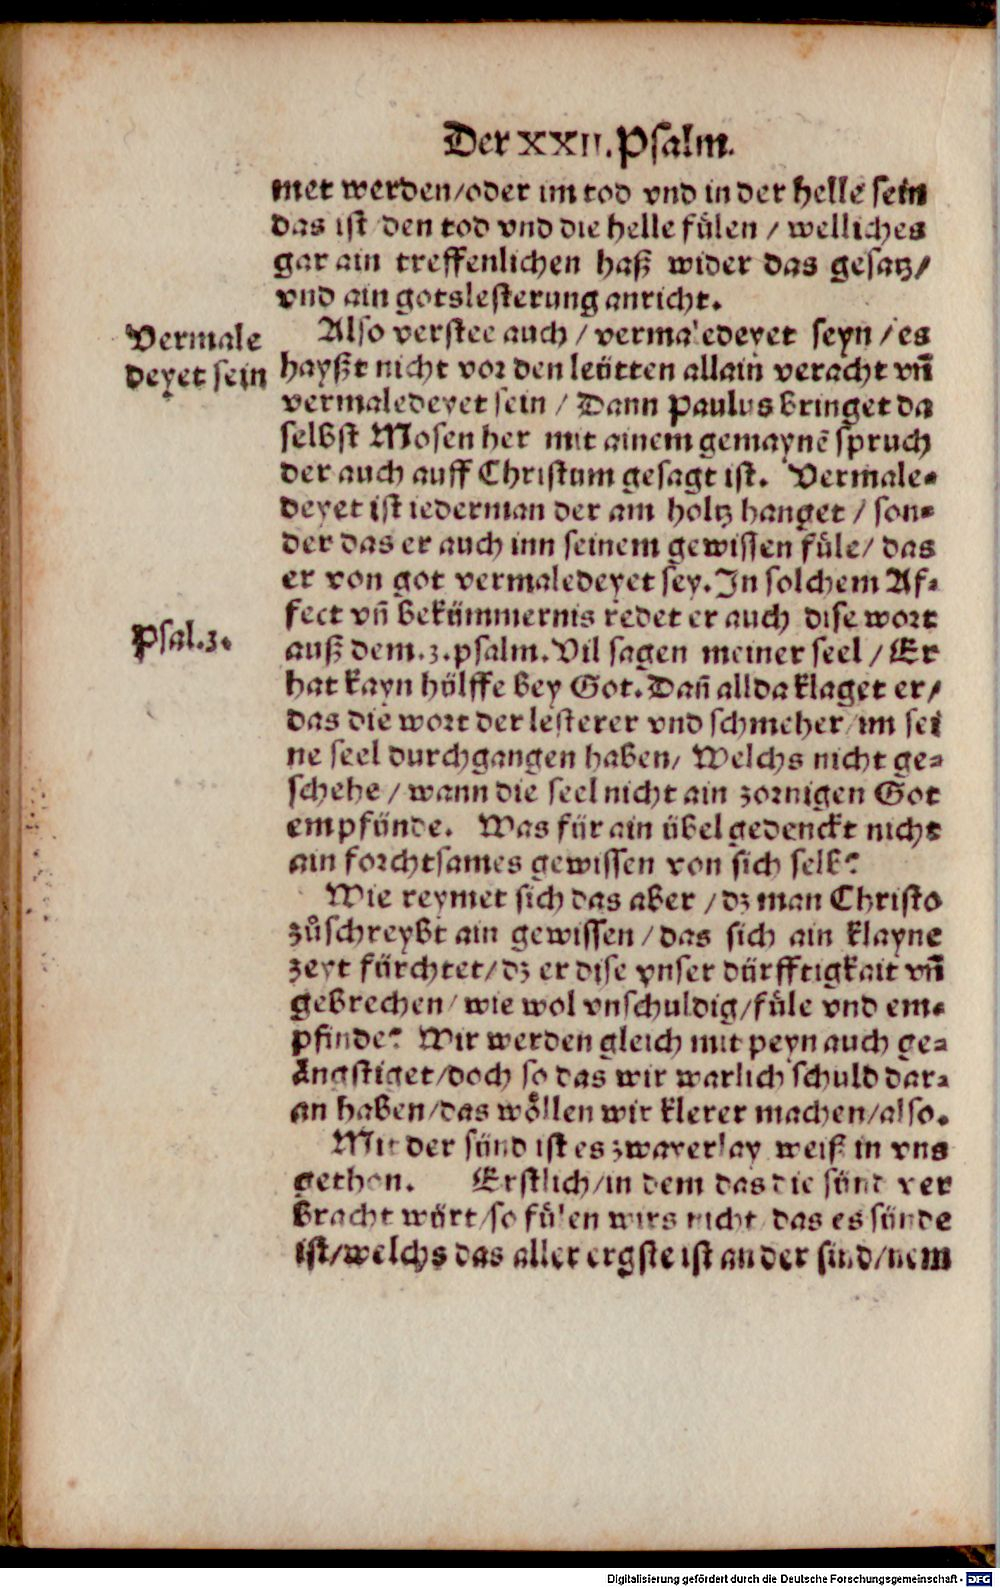 Der XXII. Psalm.
met werden/oder im tod vnd in der helle sein
das ist den tod vnd die helle fülen / welliches
gar ain treffenlichen haß wider das gesatz/
vnd ain gotslesterung anricht.
Vermale
deyet sein
Also verstee auch / vermaledeyet seyn / es
hayßt nicht vor den leütten allain veracht vñ
vermaledeyet sein / Dann Paulus bringet da
selbst Mosen her mit ainem gemaynē spruch
der auch auff Christum gesagt ist. Vermale-
deyet ist iederman der am holtz hanget / son-
der das er auch inn seinem gewissen füle/ das
er von got vermaledeyet sey. In solchem Af-
fect vñ bekümmernis redet er auch dise wort
Psal.3.
auß dem.3.psalm. Vil sagen meiner seel / Er
hat kayn hülffe bey Got. Dañ allda klaget er/
das die wort der lesterer vnd schmeher/im sei
ne seel durchgangen haben/ Welchs nicht ge-
schehe / wann die seel nicht ain zornigen Got
empfünde. Was für ain übel gedenckt nicht
ain forchtsames gewissen von sich selb?
Wie reymet sich das aber / dz man Christo
zůschreybt ain gewissen / das sich ain klayne
zeyt fürchtet/ dz er dise vnser dürfftigkait vñ
gebrechen/ wie wol vnschuldig/füle vnd em-
pfinde? Wir werden gleich mit peyn auch ge-
ängstiget/doch so das wir warlich schuld dar-
an haben/das wöllen wir klerer machen/also.
Mit der sünd ist es zwayerlay weiß in vns
gethon. Erstlich/in dem das die sünd ver
bracht würt/so fülen wirs nicht das es sünde
ist/welchs das aller ergste ist an der sünd/nem
Digitalisierung gefördert durch die Deutsche Forschungsgemeinschaft - DFG